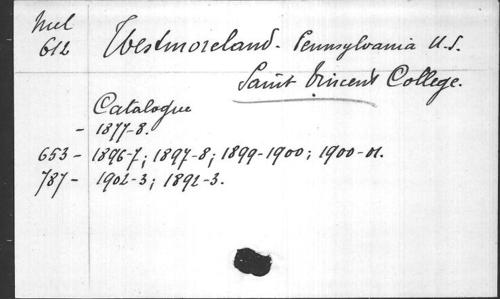 Mel
612
Westmoreland. Pennsylvania U.S.
Saint Vincent College.
Catalogue
- 1877-8.
653 - 1896-7; 1897-8; 1899-1900; 1900-01.
787 - 1902-3; 1892-3.